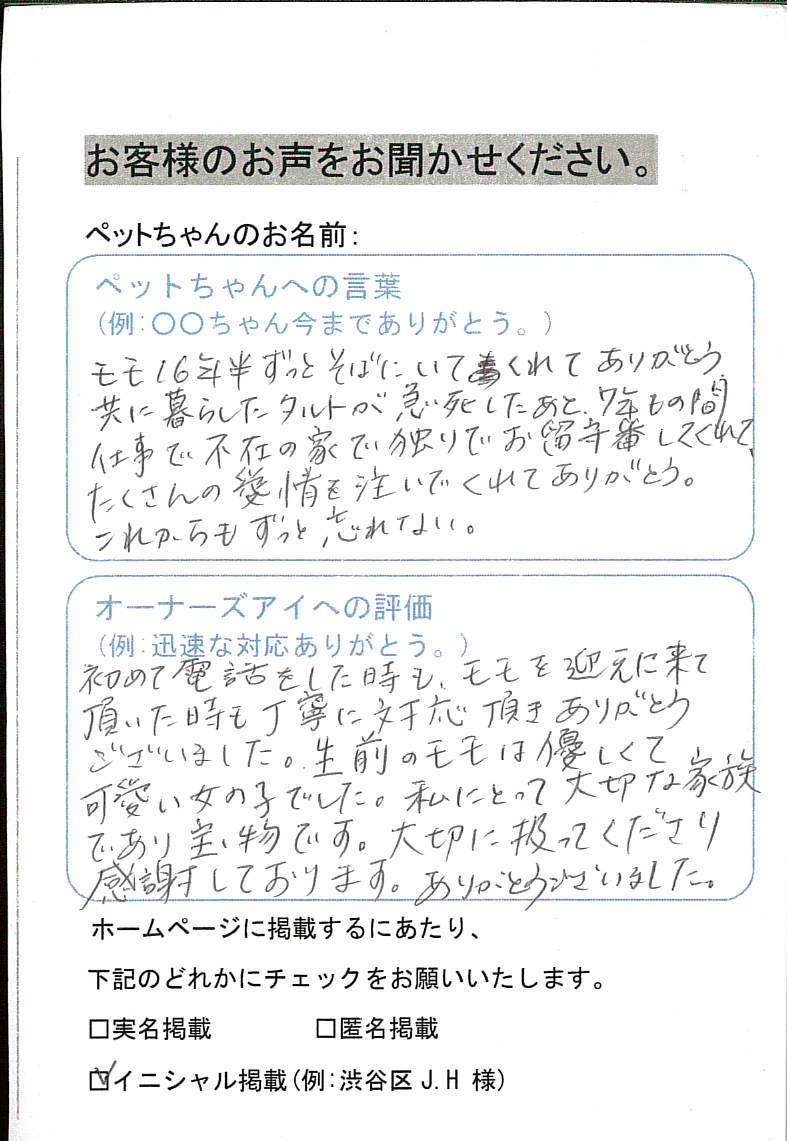 お客様のお声をお聞かせください。
ペットちゃんのお名前:
ペットちゃんへの言葉
(例:〇〇ちゃん今までありがとう。)
モモ16年半ずっとそばにいてくれてありがとう。
共に暮らしたタルトが急死したあと、7年もの間
仕事で不在の家で独りでお留守番してくれて、
たくさんの愛情を注いでくれてありがとう。
これからもずっと忘れない。
オーナーズアイへの評価
(例:迅速な対応ありがとう。)
初めて電話をした時も、モモを迎えに来て
頂いた時も丁寧に対応頂きありがとう
ございました。生前のモモは優しくて
可愛い女の子でした。私にとって大切な家族
であり宝物です。大切に扱ってくださり
感謝しております。ありがとうございました。
ホームページに掲載するにあたり、
下記のどれかにチェックをお願いいたします。
□実名掲載 □匿名掲載
☑イニシャル掲載(例:渋谷区 J.H 様)